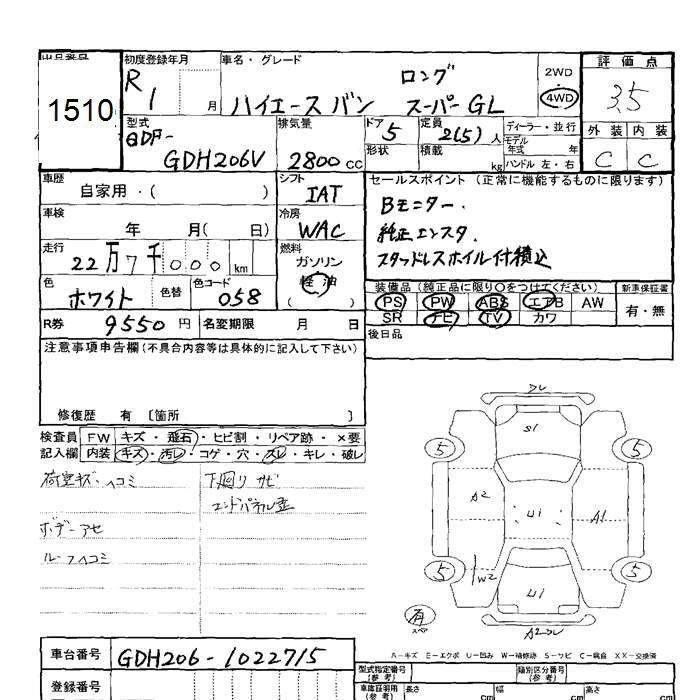 出品番号 1510
初度登録年月 R 1 月
車名・グレード ハイエース バン ロング スーパー GL
2WD 4WD
評価点 3.5
外装 内装
C C
型式 QDF- GDH206V
排気量 2800 CC
ドア 5 形状
定員 2(5) 人 積載 kg
ディーラー・並行
モデル年式 年
ハンドル 左・右
車歴 自家用・( )
シフト IAT
セールスポイント (正常に機能するものに限ります)
車検 年 月( 日)
冷房 WAC
Bモニター.
純正エンスタ.
スタッドレスホイル付積込
走行 22万7千000 km
燃料 ガソリン 軽油 ( )
色 ホワイト 色替 色コード 058
装備品 (純正品に限り○をつけてください) 新車保証書
PS PW ABS エアB AW 有・無
SR PE TV カワ
R券 9550 円 名変期限 月 日
後日品
注意事項申告欄(不具合内容等は具体的に記入して下さい)
修復歴 有 〔箇所 〕
検査員 FW キズ・飛石・ヒビ割・リペア跡・×要
記入欄 内装 キズ・汚レ・コゲ・穴・スレ・キレ・破レ
荷室キズ・ヘコミ 下回りサビ
エンドパネル歪
ボデーアセ
ルーフヘコミ
フレ
S1
5 5
A2 U1 A1
5 W2 5
U1
有 スペア
A2フレ
A-キズ E-エクボ U-凹み W-補修跡 S-サビ C-腐食 XX-交換済
車台番号 GDH206-1022715
型式指定番号(参考) 類別区分番号(参考)
登録番号
車庫証明用(参考) 長さ cm 幅 cm 高さ cm